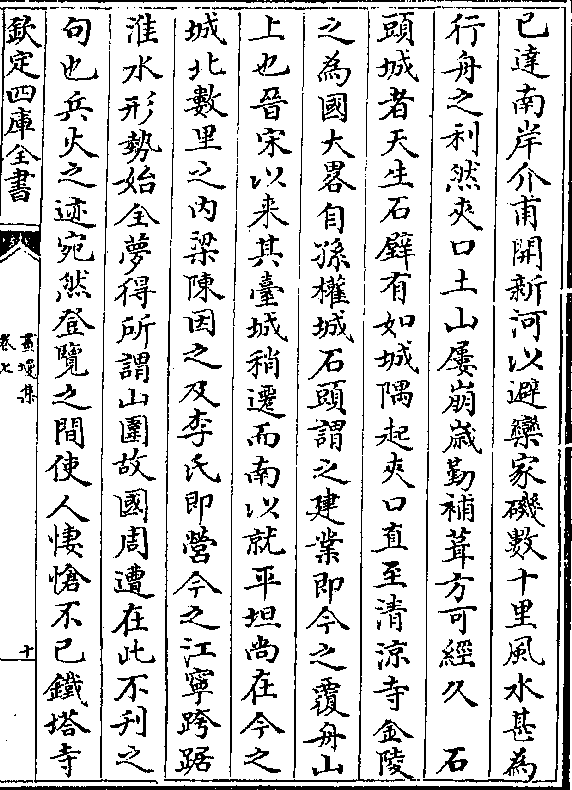 已達南岸介甫開新河以避欒家磯數十里風水甚為
行舟之利然夾口土山屢崩歲勤補葺方可經久　石
頭城者天生石壁有如城隅起夾口直至清涼寺金陵
之為國大畧自孫權城石頭謂之建業即今之覆舟山
上也晉宋以来其臺城稍遷而南以就平坦尚在今之
城北數里之内梁陳因之及李氏即營今之江寧跨踞
淮水形勢始全夢得所謂山圍故國周遭在此不刋之
句也兵火之迹宛然登覽之間使人悽愴不已鐵塔寺
欽定四庫全書
畫墁集
卷七
十